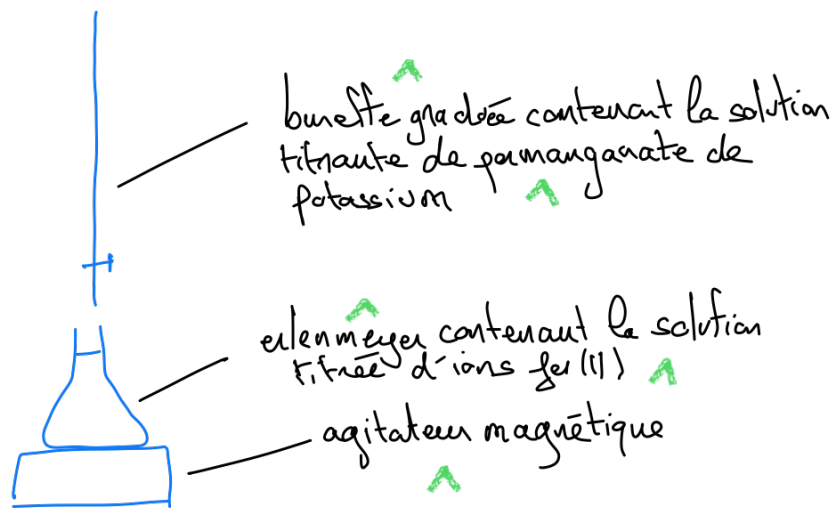 burette graduée contenant la solution
titrante de permanganate de
potassium
erlenmeyer contenant la solution
titrée d'ions fer (II)
agitateur magnétique